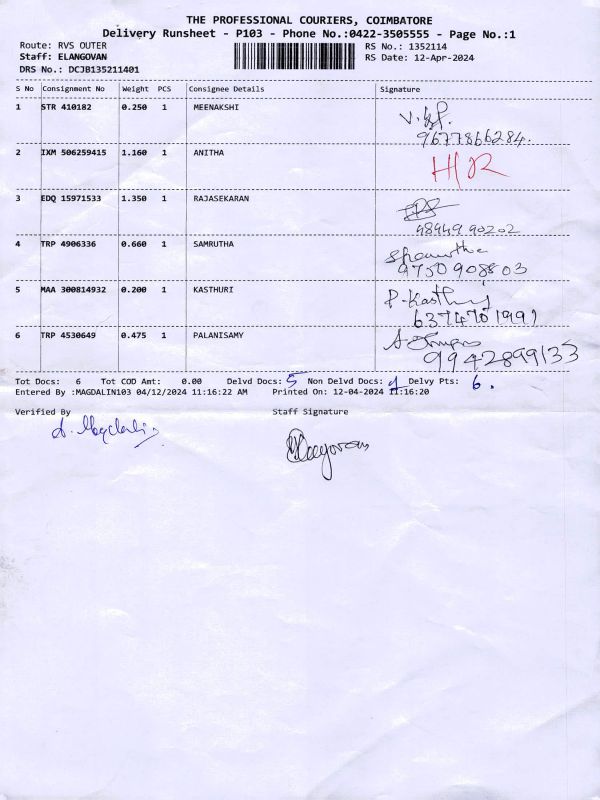 THE PROFESSIONAL COURIERS, COIMBATORE
Delivery Runsheet - P103 - Phone No.:0422-3505555 - Page No.:1
Route: RVS OUTER RS No.: 1352114
Staff: ELANGOVAN RS Date: 12-Apr-2024
DRS No.: DCJB135211401
S No Consignment No Weight PCS Consignee Details Signature
1 STR 410182 0.250 1 MEENAKSHI
9677866284.
2 IXM 506259415 1.160 1 ANITHA H/R
3 EDQ 15971533 1.350 1 RAJASEKARAN
48949 90202
4 TRP 4906336 0.660 1 SAMRUTHA
9750908803
5 MAA 300814932 0.200 1 KASTHURI P-Kasthuri
6374701991
6 TRP 4530649 0.475 1 PALANISAMY
9942899133
Tot Docs: 6 Tot COD Amt: 0.00 Delvd Docs: 5 Non Delvd Docs: 1 Delvy Pts: 6.
Entered By :MAGDALIN103 04/12/2024 11:16:22 AM Printed On: 12-04-2024 11:16:20
Verified By Staff Signature
A. Magdalin Elangovan